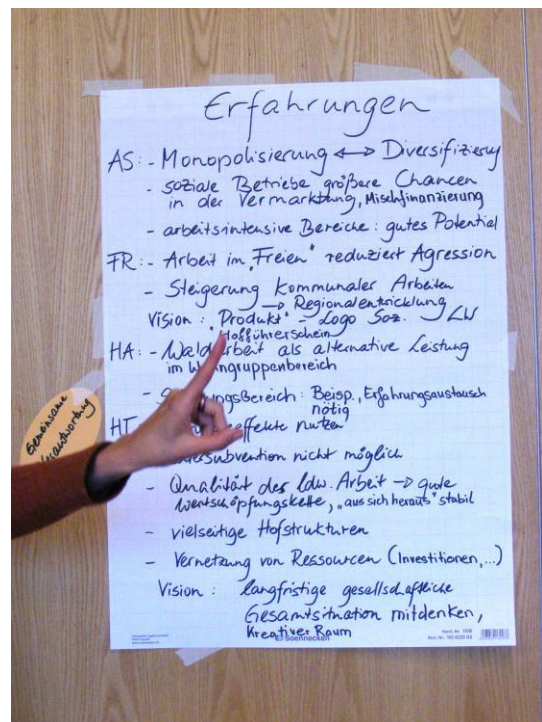 Erfahrungen
AS: - Monopolisierung ↔ Diversifizierung
- soziale Betriebe größere Chancen
in der Vermarktung, Mischfinanzierung
- arbeitsintensive Bereiche: gutes Potential
FR: - Arbeit im „Freien“ reduziert Agression
- Steigerung kommunaler Arbeiten
→ Regionalentwicklung
Vision: „Produkt“ - Logo Soz. LW
"Hofführerschein
HA: - Waldarbeit als alternative Leistung
im
- Beisp., Erfahrungsaustausch
nötig
HT nutzen
nicht möglich
- Qualität der ldw. Arbeit → gute
Wertschöpfungskette, „aus sich heraus“ stabil
- vielseitige Hofstrukturen
- Vernetzung von Ressourcen (Investitionen,...)
Vision: langfristige gesellschaftliche
Gesamtsituation mitdenken,
Kreativer Raum
Soennecken
Gemeinsame